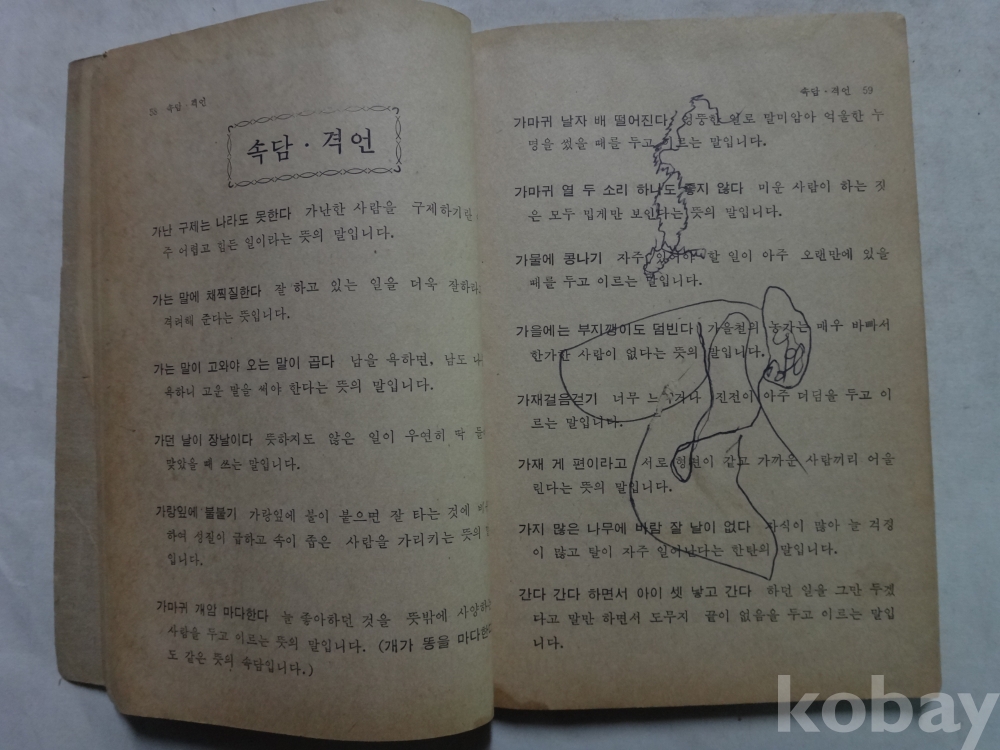 58 속담·격언
속담·격언
가난 구제는 나라도 못한다 가난한 사람을 구제하기란
주 어렵고 힘든 일이라는 뜻의 말입니다.
가는 말에 채찍질한다 잘 하고 있는 일을 더욱 잘하라
격려해 준다는 뜻입니다.
가는 말이 고와야 오는 말이 곱다 남을 욕하면, 남도
욕하니 고운 말을 써야 한다는 뜻의 말입니다.
가던 날이 장날이다 뜻하지도 않은 일이 우연히 딱
맞았을 때 쓰는 말입니다.
가랑잎에 불붙기 가랑잎에 불이 붙으면 잘 타는 것에
하여 성질이 급하고 속이 좁은 사람을 가리키는 뜻의
입니다.
가마귀 개암 마다한다 늘 좋아하던 것을 뜻밖에
사람을 두고 이르는 뜻의 말입니다. (개가 똥을 마다한다
도 같은 뜻의 속담입니다.)
속담·격언 59
가마귀 날자 배 떨어진다 엉뚱한 일로 말미암아 억울한 누
명을 썼을 때를 두고 이르는 말입니다.
가마귀 열 두 소리 하나도 좋지 않다 미운 사람이 하는 짓
은 모두 밉게만 보인다는 뜻의 말입니다.
가물에 콩나기 자주 일이 아주 오랜만에 있을
때를 두고 이르는 말입니다.
가을에는 부지깽이도 덤빈다 가을철의 농가는 매우 바빠서
한가한 사람이 없다는 뜻의 말입니다.
가재걸음걷기 너무 느리거나 진전이 아주 더딤을 두고 이
르는 말입니다.
가재 게 편이라고 서로 형편이 같고 가까운 사람끼리 어울
린다는 뜻의 말입니다.
가지 많은 나무에 바람 잘 날이 없다 자식이 많아 늘 걱정
이 많고 탈이 자주 일어난다는 한탄의 말입니다.
간다 간다 하면서 아이 셋 낳고 간다 하던 일을 그만 두겠
다고 말만 하면서 도무지 끝이 없음을 두고 이르는 말입
니다.
kobay